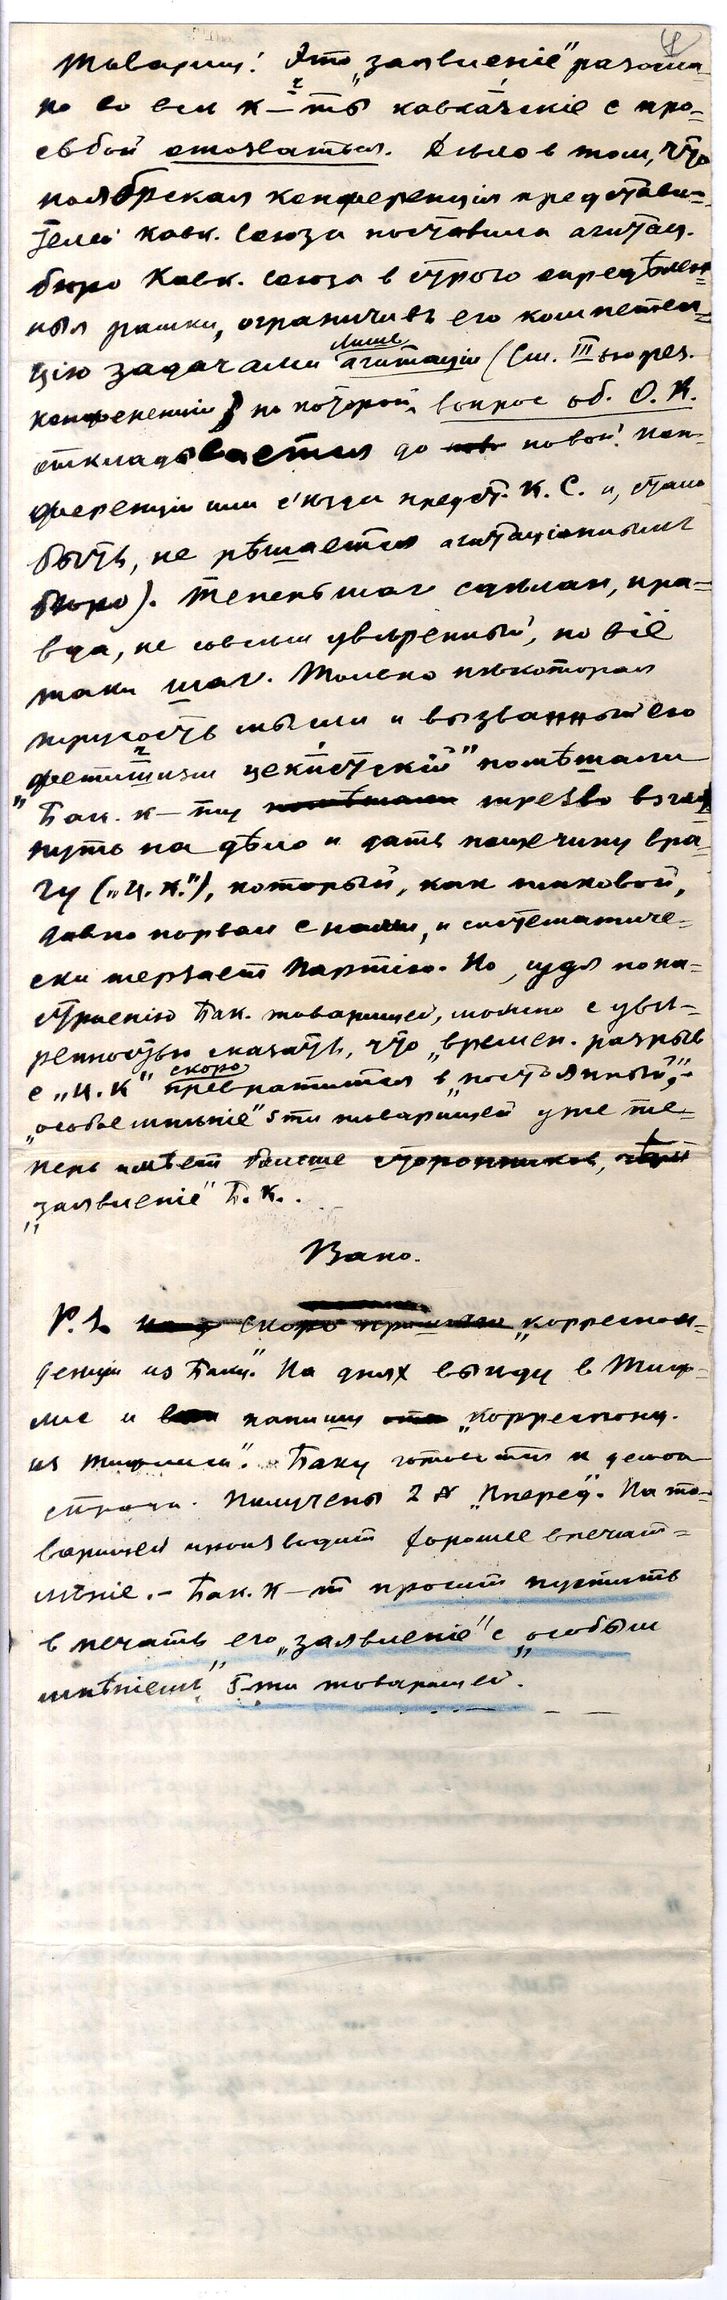 Товарищ! Это „заявленіе" разосла-
но во все к—ты кавказскіе с про-
сьбой отозваться. Дѣло в том, что
ноябрская конференція представи-
телей Кавк. Союза поставила агитац.
бюро Кавк. Союза в строго опредѣлен-
ныя рамки, ограничивъ его компетен-
цію задачами лишь агитаціи (См. III-ью рез.
конференціи, по которой вопрос об. О. К.
откладывается до нов новой кон-
ференціи или съѣзда предст. К. С. и, стало
быть, не рѣшается агитаціонным
бюро). Теперь шаг сдѣлан, пра-
вда, не совсѣм увѣренный, но всё
таки шаг. Только нѣкоторая
трусость мысли и вызванный ею
„фетишизм цекистскій" помѣшали
Бак. к—ту помѣшали трезво взгля-
нуть на дѣло и дать пощечину вра-
гу („Ц. К."), который, как таковой,
давно порвал с нами, и систематиче-
ски терзает партію. Но, судя по на-
строенію Бак. товарищей, можно с увѣ-
ренностью сказать, что „времен. разрыв
с „Ц. К" скоро превратится в „постоянный",—
„особое мнѣніе" 5 ти товарищей уже те-
перь имѣет больше сторонников, чѣм
„заявленіе" Б. К..
Вано.
P. S. скоро „корреспон-
денціи из Баку." На днях выѣду в Тиф-
лис и напишу „корреспонд.
из Тифлиса". Баку готовится к демон
страціи. Получены 2 № „Вперед". На то-
варищей производит хорошее впечат-
лѣніе.— Бак. К—т просит пустить
в печать его „заявленіе" с „особым
мнѣніем" 5-ти товарищей.